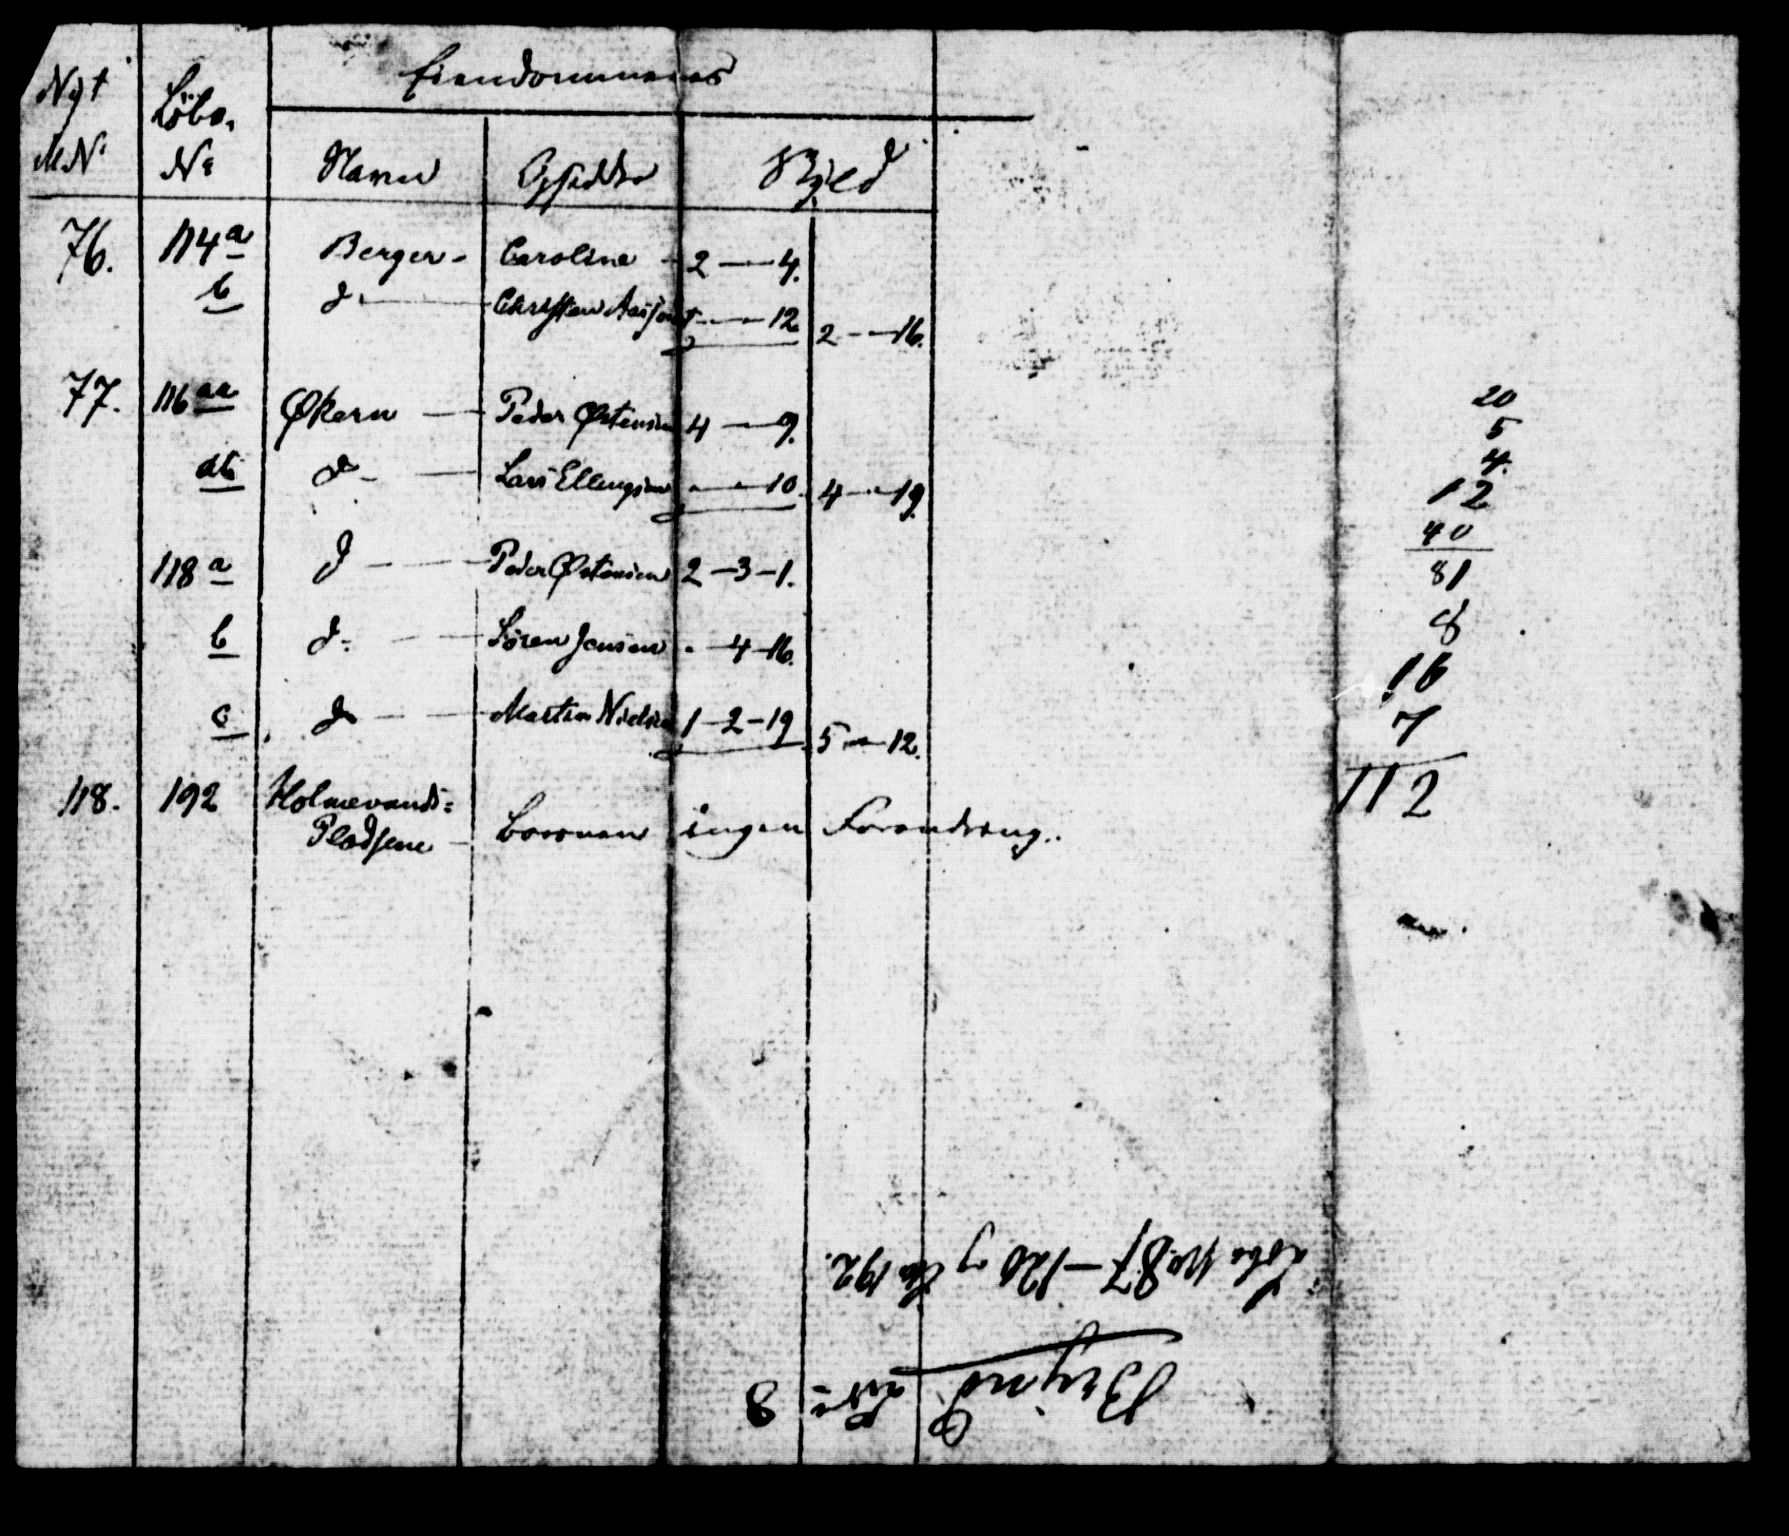 Eiendommenes
Nyt Löbe,
M.N: N: Navn Opsidder Skyld
76. 114 a Berger - Caroline - 2 — 4.
b d° — Christian — 12 2 — 16.
77. 116 aa Økern — Peder Østensen 4 — 9.
ab d° — Lars Ellingsen . — 10. 4 — 19.
118 a d° — Peder Østensen 2 – 3 – 1.
b d° — Sören Jensen . – 4 – 16.
c d° — Martin Nielsen 1 – 2 – 19 5 — 12.
118. 192 Holmevands=
Pladsene - ingen Forandring..
20
5
4.
12
40
81
8
16
7
112
Löbe No 87 – 120 og 192.
8